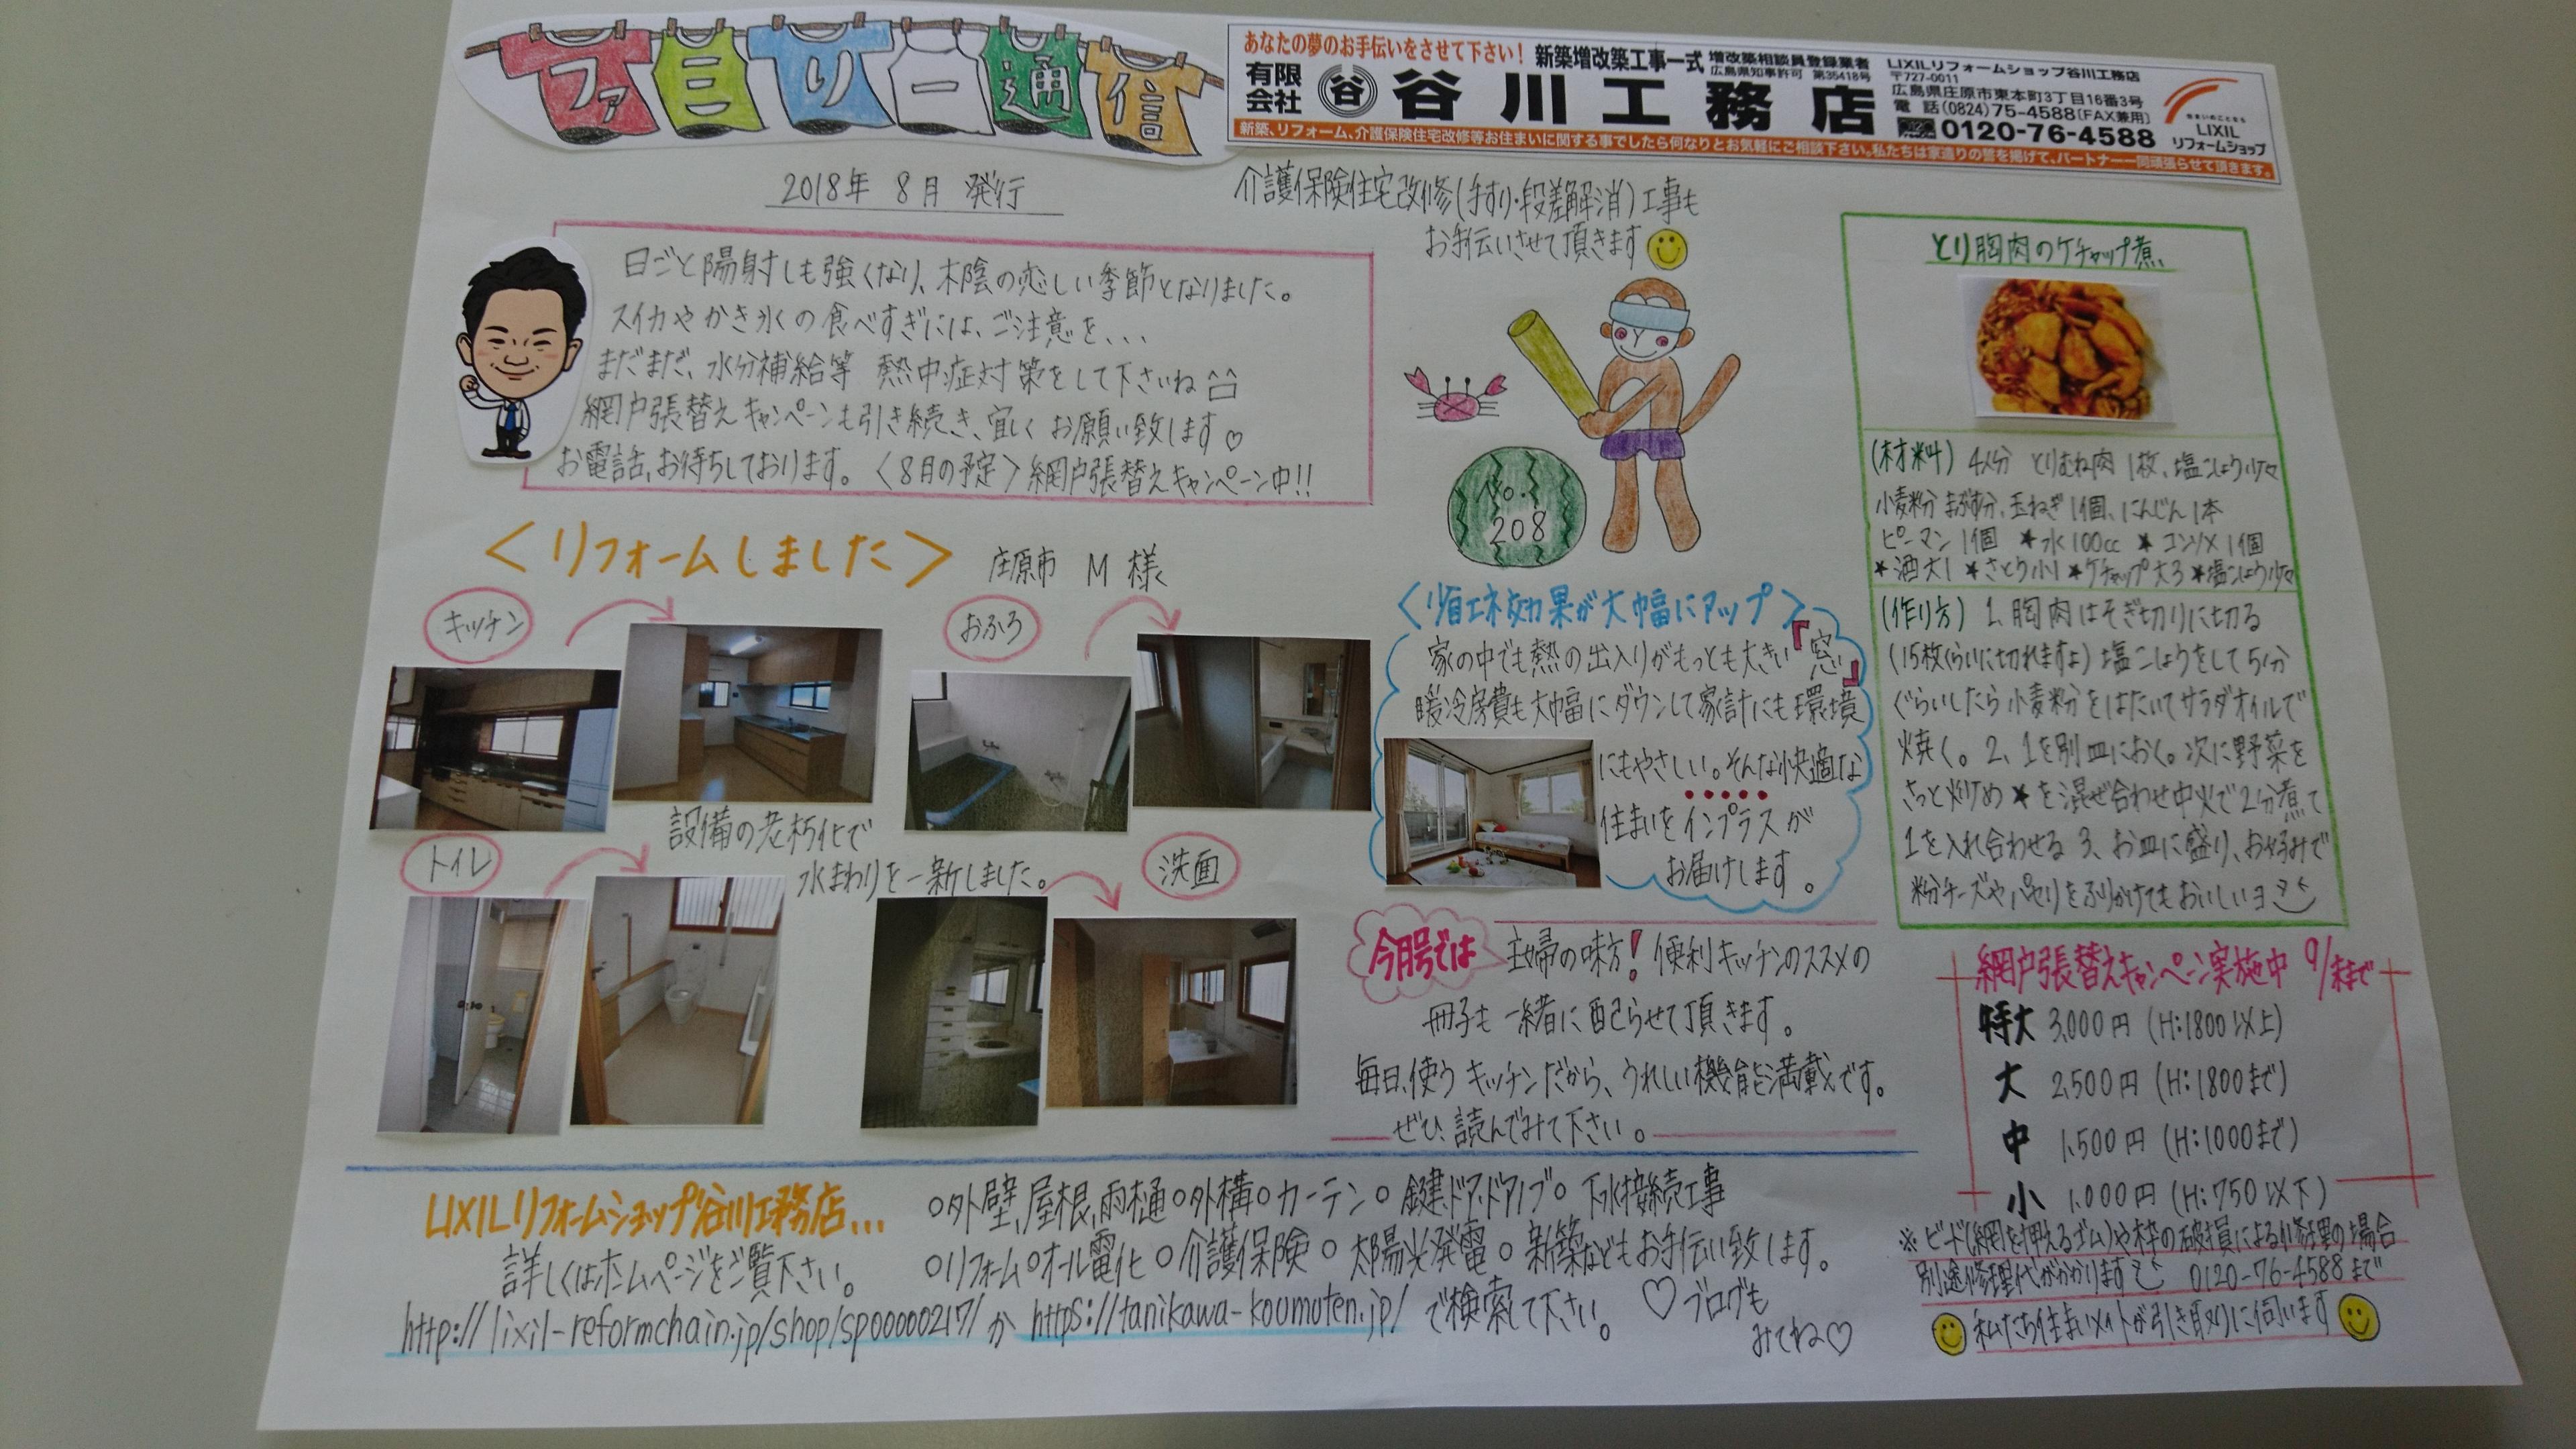 ファミリー通信
あなたの夢のお手伝いをさせて下さい! 新築増改築工事一式
増改築相談員登録業者
広島県知事許可 第35418号
有限会社 谷 谷川工務店
LIXILリフォームショップ谷川工務店
〒727-0011
広島県庄原市東本町3丁目16番3号
電話(0824)75-4588〔FAX兼用〕
0120-76-4588
住まいのことなら
LIXIL
リフォームショップ
新築、リフォーム、介護保険住宅改修等お住まいに関する事でしたら何なりとお気軽にご相談下さい。私たちは家造りの誉を掲げて、パートナー一同頑張らせて頂きます。
2018年 8月 発行
介護保険住宅改修(手すり・段差解消)工事も
お手伝いさせて頂きます
日ごと陽射しも強くなり、木陰の恋しい季節となりました。
スイカやかき氷の食べすぎには、ご注意を、、、
まだまだ、水分補給等 熱中症対策をして下さいね
網戸張替えキャンペーンも引き続き、宜しくお願い致します♡
お電話、お待ちしております。〈8月の予定〉網戸張替えキャンペーン中!!
No.
208
<リフォームしました> 庄原市 M 様
キッチン
おふろ
設備の老朽化で
水まわりを一新しました。
トイレ
洗面
<省エネ効果が大幅にアップ>
家の中でも熱の出入りがもっとも大きい『窓』
暖冷房費も大幅にダウンして家計にも環境
にもやさしい。そんな快適な
住まいをインプラスが
お届けします。
今月号では 主婦の味方!便利キッチンのススメの
冊子も一緒に配らせて頂きます。
毎日、使うキッチンだから、うれしい機能満載です。
ぜひ、読んでみて下さい。
とり胸肉のケチャップ煮
(材料) 4人分 とりむね肉 1枚、塩こしょう少々
小麦粉 まぶす分、玉ねぎ 1個、にんじん 1本
ピーマン 1個 ★水100cc ★コンソメ1個
★酒大1 ★さとう小1 ★ケチャップ大3 ★塩こしょう少々
(作り方) 1、胸肉はそぎ切りに切る
(15枚くらいに切れますよ) 塩こしょうをして5分
ぐらいしたら小麦粉をはたいてサラダオイルで
焼く。2、1を別皿におく。次に野菜を
さっと炒め★を混ぜ合わせ中火で2分煮て
1を入れ合わせる 3、お皿に盛り、お好みで
粉チーズやパセリをふりかけてもおいしいヨ
網戸張替えキャンペーン実施中 9/末まで
特大 3,000円 (H:1800以上)
大 2,500円 (H:1800まで)
中 1,500円 (H:1000まで)
小 1,000円 (H:750以下)
※ビード(網を押えるゴム)や枠の破損による修理の場合
別途修理代がかかります 0120-76-4588まで
私たち住まいメイトが引き取りに伺います
LIXILリフォームショップ谷川工務店...
○外壁,屋根,雨樋○外構○カーテン○ 鍵,ドア,ドアノブ○ 下水接続工事
詳しくはホームページをご覧下さい。
○リフォーム○オール電化○介護保険○ 太陽光発電○ 新築などもお手伝い致します。
http://lixil-reformchain.jp/shop/sp00000217/か https://tanikawa-koumuten.jp/ で検索して下さい。
♡ブログも
みてね♡